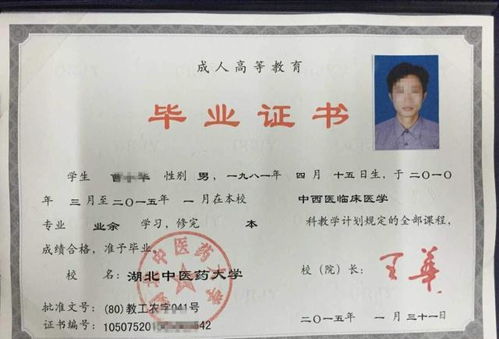 成人高等教育
毕业证书
学生 性别 男,一九八一年 四 月 十五日生,于 二〇一〇
年 三月至 二〇一五年 一 月在本校 中西医临床医学
专业 业余 学习,修完 本 科教学计划规定的全部课程,
成绩合格,准予毕业。
校 名: 湖北中医药大学 校(院)长: 王華
批准文号: (80)教工农字041号
证书编号: 10507520 42 二〇一五年 一 月 三十一日